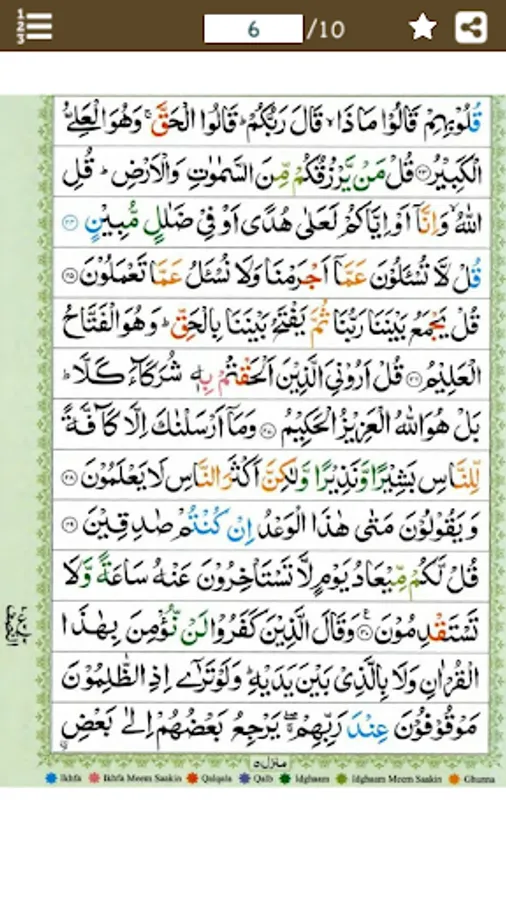 6 /10
قُلُوْبِهِمْ قَالُوْا مَاذَا ۙ قَالَ رَبُّكُمْ ؕ قَالُوا الْحَقَّ ۚ وَهُوَ الْعَلِىُّ
الْكَبِيْرُ ﴿۲۳﴾ قُلْ مَنْ يَّرْزُقُكُمْ مِّنَ السَّمٰوٰتِ وَالْاَرْضِ ؕ قُلِ
اللّٰهُ ۙ وَاِنَّاۤ اَوْ اِيَّاكُمْ لَعَلٰى هُدًى اَوْ فِىْ ضَلٰلٍ مُّبِيْنٍ ﴿۲۴﴾
قُلْ لَّا تُسْـَٔلُوْنَ عَمَّاۤ اَجْرَمْنَا وَلَا نُسْـَٔلُ عَمَّا تَعْمَلُوْنَ ﴿۲۵﴾
قُلْ يَجْمَعُ بَيْنَنَا رَبُّنَا ثُمَّ يَفْتَحُ بَيْنَنَا بِالْحَقِّ ؕ وَهُوَ الْفَتَّاحُ
الْعَلِيْمُ ﴿۲۶﴾ قُلْ اَرُوْنِىَ الَّذِيْنَ اَلْحَقْتُمْ بِهٖ شُرَكَآءَ كَلَّا ؕ
بَلْ هُوَ اللّٰهُ الْعَزِيْزُ الْحَكِيْمُ ﴿۲۷﴾ وَمَاۤ اَرْسَلْنٰكَ اِلَّا كَآفَّةً
لِّلنَّاسِ بَشِيْرًا وَّنَذِيْرًا وَّلٰكِنَّ اَكْثَرَ النَّاسِ لَا يَعْلَمُوْنَ ﴿۲۸﴾
وَيَقُوْلُوْنَ مَتٰى هٰذَا الْوَعْدُ اِنْ كُنْتُمْ صٰدِقِيْنَ ﴿۲۹﴾
قُلْ لَّكُمْ مِّيْعَادُ يَوْمٍ لَّا تَسْتَاْخِرُوْنَ عَنْهُ سَاعَةً وَّلَا
تَسْتَقْدِمُوْنَ ﴿۳۰﴾ وَقَالَ الَّذِيْنَ كَفَرُوْا لَنْ نُّؤْمِنَ بِهٰذَا
الْقُرْاٰنِ وَلَا بِالَّذِىْ بَيْنَ يَدَيْهِ ؕ وَلَوْ تَرٰٓى اِذِ الظّٰلِمُوْنَ
مَوْقُوْفُوْنَ عِنْدَ رَبِّهِمْ ۖ يَرْجِعُ بَعْضُهُمْ اِلٰى بَعْضِ
منزل ۵
Ikhfa Ikhfa Meem Saakin Qalqala Qalb Idghaam Idghaam Meem Saakin Ghunna